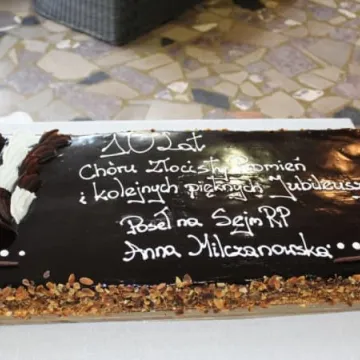 10 lat
Chóru Złocisty Promień
i kolejnych pięknych Jubileusz
Poseł na Sejm RP
Anna Milczanowska